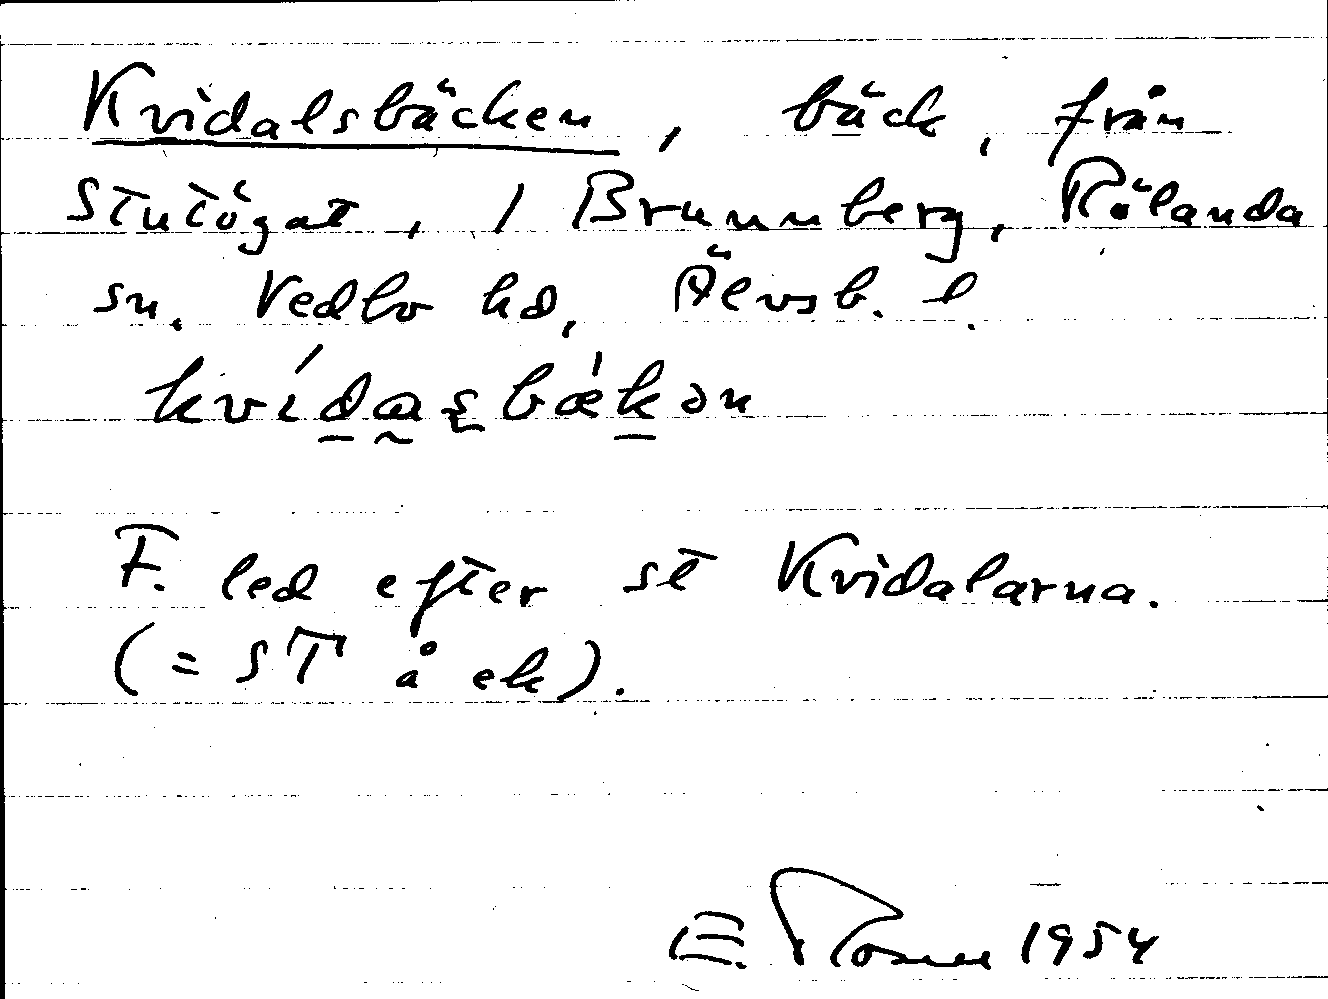 Kvidalsbäcken, bäck, från
Stutögat, 1 Brunnberg, Rölanda
sn. Vedbo hd, Älvsb. l.
kvídaʂbækən
F. led efter st Kvidalarna.
(= ST å ek).
E. 1954